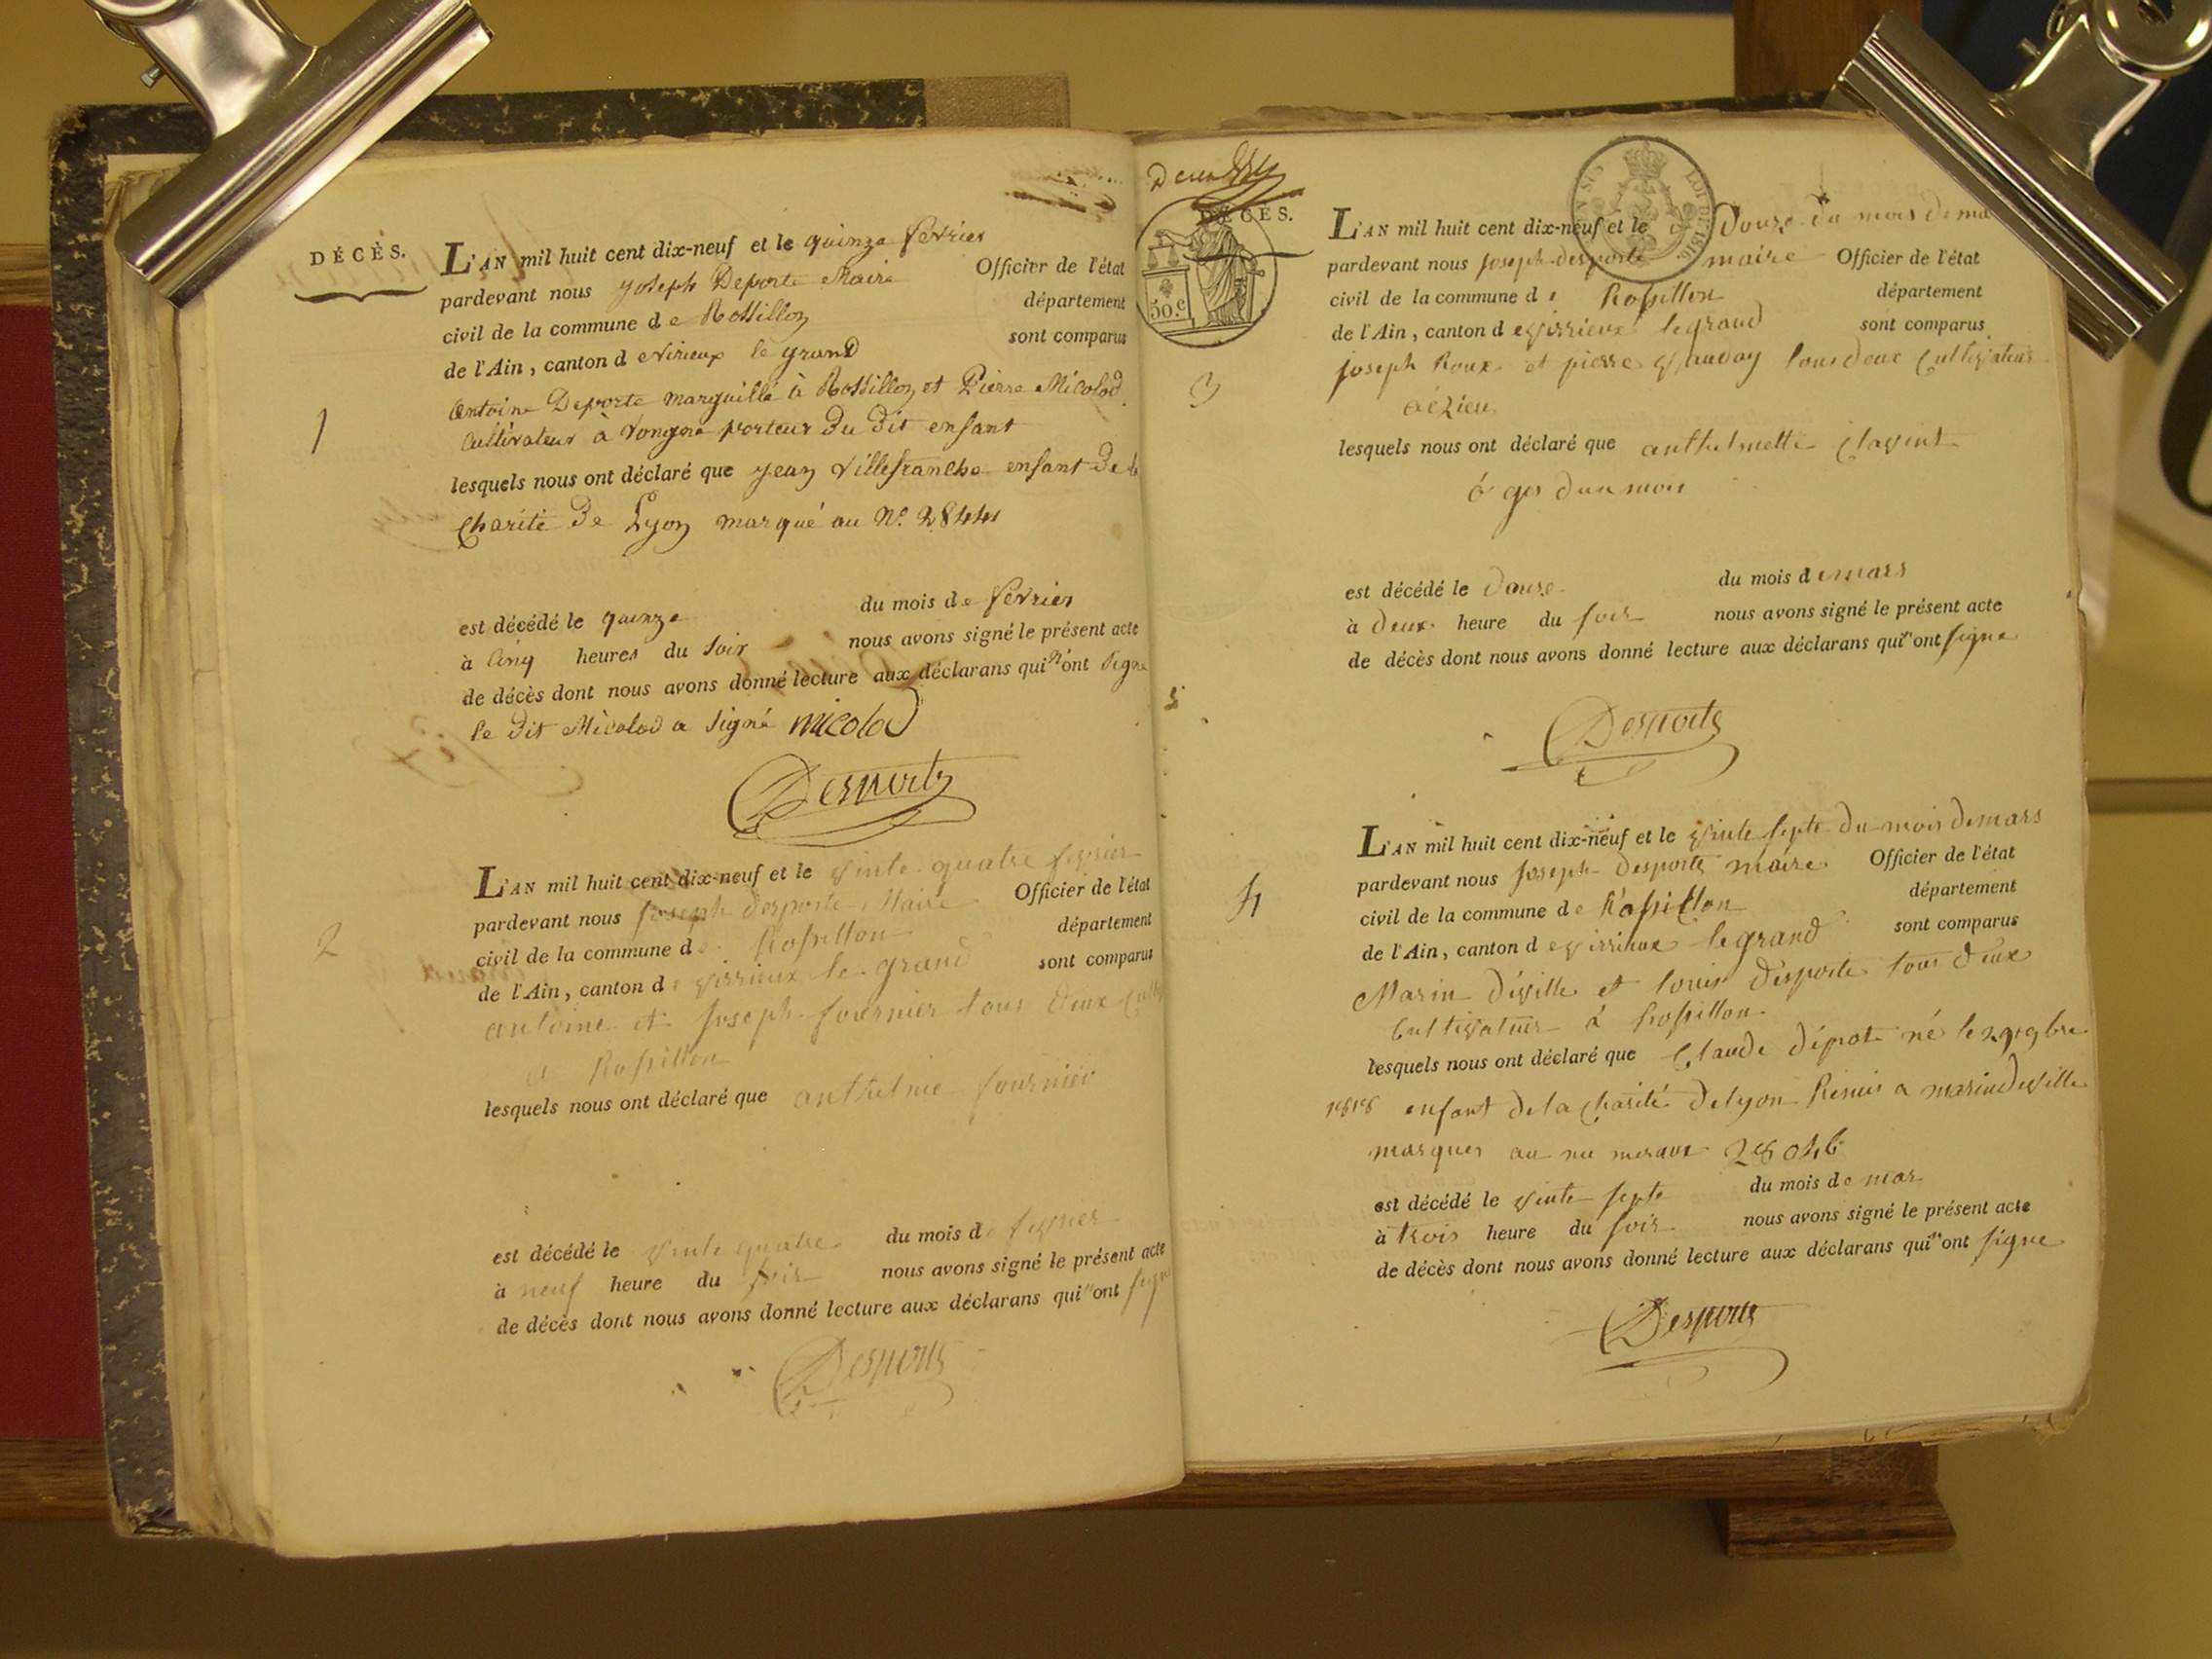 DÉCÈS.
L'AN mil huit cent dix-neuf et le quinze fevrier
pardevant nous joseph Deporte Maire Officier de l'état
civil de la commune de Rossillon département
de l'Ain, canton de virieux le grand sont comparus
1
antoine Deporte marguillé à Rossillon et Pierre Micolod
Cultivateur à vongne porteur du dit enfant
lesquels nous ont déclaré que jean Villefranche enfant de la
Charité de Lyon marqué au N.º
est décédé le quinze du mois de fevrier
à Cinq heures du soir nous avons signé le présent acte
de décès dont nous avons donné lecture aux déclarans qui n'ont signe
le dit Micolod a signé micolod
Desporte
2
L'AN mil huit cent dix-neuf et le vinte quatre fevrier
pardevant nous joseph desporte Maire Officier de l'état
civil de la commune de Rossillon département
de l'Ain, canton de virrieux le grand sont comparus
antoine et joseph fournier tous deux
a Rossillon
lesquels nous ont déclaré que anthelme fournier
est décédé le vinte quatre du mois de fevrier
à neuf heure du soir nous avons signé le présent acte
de décès dont nous avons donné lecture aux déclarans qui n'ont signe
Desporte
DÉCÈS.
50.c
LOI DE 1816
L'AN mil huit cent dix-neuf et le Douse du mois de mars
pardevant nous joseph desporte maire Officier de l'état
civil de la commune de Rossillon département
de l'Ain, canton de virrieux legrand sont comparus
3
joseph Roux et pierre tous deux Cultivateur
lesquels nous ont déclaré que anthelmette
dun mois
est décédé le douse du mois de mars
à deux heure du soir nous avons signé le présent acte
de décès dont nous avons donné lecture aux déclarans qui n'ont signe
Desporte
4
L'AN mil huit cent dix-neuf et le vinte septe du mois de mars
pardevant nous joseph desporte maire Officier de l'état
civil de la commune de Rossillon département
de l'Ain, canton de virrieux legrand sont comparus
Marin déville et louis desporte tous deux
Cultivateur à Rossillon
lesquels nous ont déclaré que Claude dépot né le 29 9bre
1818 enfant de la Charité de lyon Remis a marin deville
marquer au numeraux 28046
est décédé le vinte septe du mois de mar
à trois heure du soir nous avons signé le présent acte
de décès dont nous avons donné lecture aux déclarans qui n'ont signe
Desporte